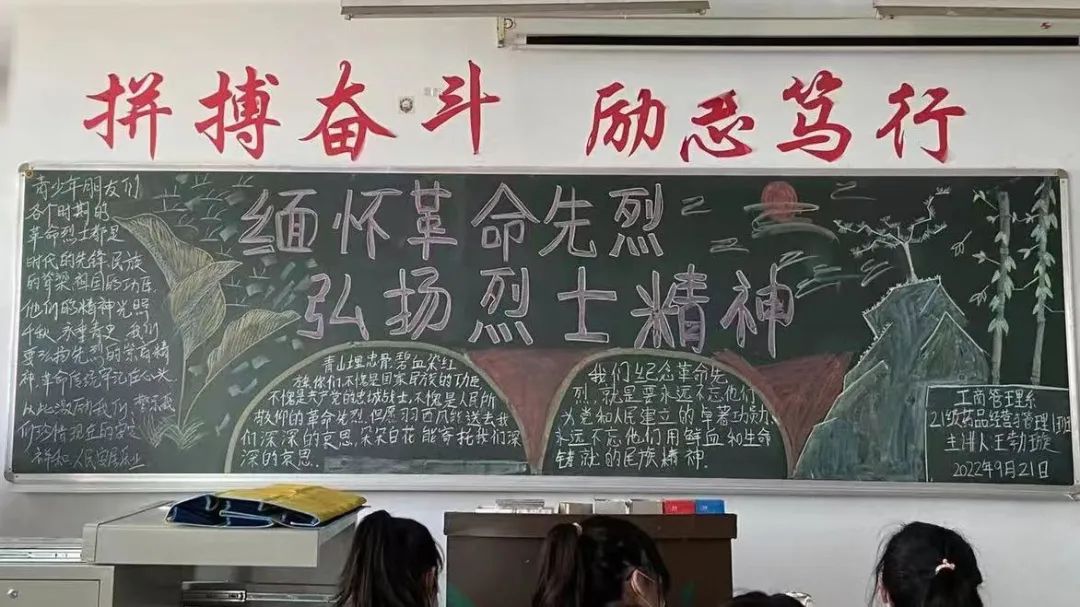 拼搏奋斗 励志笃行
缅怀革命先烈
弘扬烈士精神
青少年朋友们
各个时期的
革命烈士都是
时代的先锋,民族
的脊梁,祖国的功臣
他们的精神光照
千秋、永垂青史,我们
要弘扬先烈的崇高精
神,革命传统牢记在心头
从此激励我们
们珍惜现在的安定
祥和、人民安居乐业
青山埋忠骨,碧血染红
旗,你们不愧是国家民族的功臣
不愧是共产党的忠诚战士,不愧是人民所
敬仰的革命先烈,但愿习习西风能送去我
们深深的哀思,朵朵白花能寄托我们深
深的哀思.
我们纪念革命先
烈,就是要永远不忘他们
为党和人民建立的卓著功勋,
永远不忘他们用鲜血和生命
铸就的民族精神.
工商管理系
21级药品经营与管理1班
主讲人王勃璇
2022年9月21日